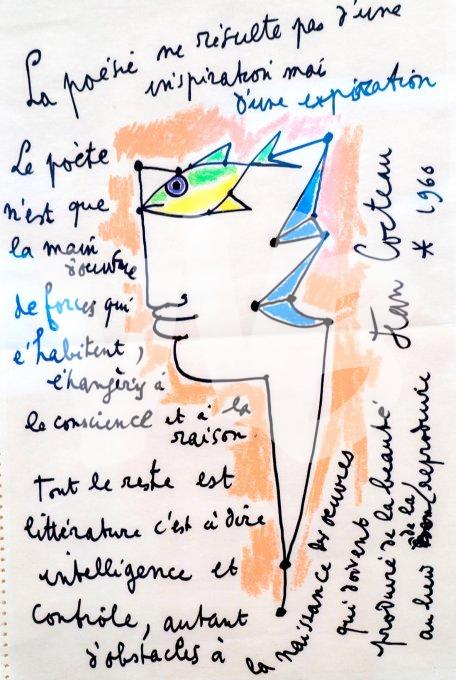 La poésie ne résulte pas d'une
inspiration mai
d'une expiration
Le poète
n'est que
la main
d'œuvre
de forces qui
l'habitent,
étrangères à
la conscience et à la
raison.
Tout le reste est
littérature c'est à dire
intelligence et
contrôle, autant
d'obstacles à
la naissance des œuvres
qui doivent
produire de la beauté
au lieu de la reproduire
Jean Cocteau
* 1960